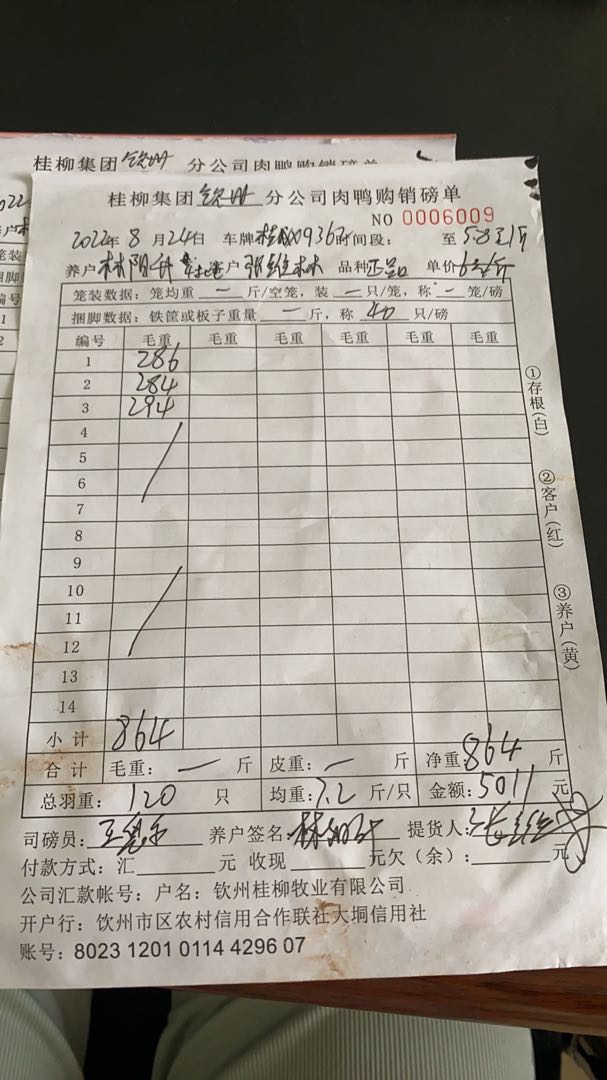 桂柳集团 钦州 分公司肉鸭购销磅单
2022
桂柳集团 钦州 分公司肉鸭购销磅单
NO 0006009
2022年 8 月 24日 车牌 时间段: 至 5.8
养户 客户 品种 正 单价
笼装数据: 笼均重 一 斤/空笼, 装 一 只/笼, 称 一 笼/磅
捆脚数据: 铁筐或板子重量 一 斤, 称 40 只/磅
编号 毛重 毛重 毛重 毛重 毛重 毛重
1 286
2 284
3 294
4
5
6
7
8
9
10
11
12
13
14
小计 864
合计 毛重: 一 斤 皮重: 一 斤 净重: 864 斤
总羽重: 120 只 均重: 7.2 斤/只 金额: 5011 元
司磅员: 养户签名: 提货人:
付款方式: 汇 元 收现 元 欠(余): 元
公司汇款帐号: 户名: 钦州桂柳牧业有限公司
开户行: 饮州市区农村信用合作联社大垌信用社
账号: 8023 1201 0114 4296 07
①存根(白)
②客户(红)
③养户(黄)